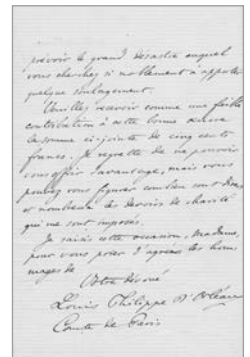 prévoir le grand désastre auquel
vous cherchez si noblement à apporter
quelque soulagement.
Veuillez recevoir comme une faible
contribution à cette bonne œuvre
la somme ci-jointe de cinq cents
francs. Je regrette de ne pouvoir
vous offrir davantage, mais vous
pouvez vous figurer combien sont
et nombreux les devoirs de charité
qui me sont imposés.
Je saisis cette occasion, Madame,
pour vous prier d'agréer les hom
mages de
Votre dévoué
Louis Philippe d'Orléans
Comte de Paris